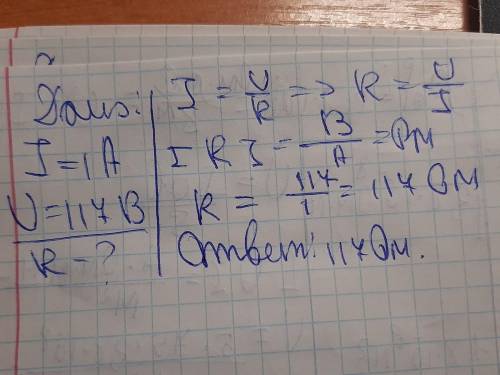 Дано:
I = 1 А
U = 117 В
R - ?
I = U/R => R = U/I
[R] = В/А = Ом
R = 117/1 = 117 Ом
Ответ: 117 Ом.